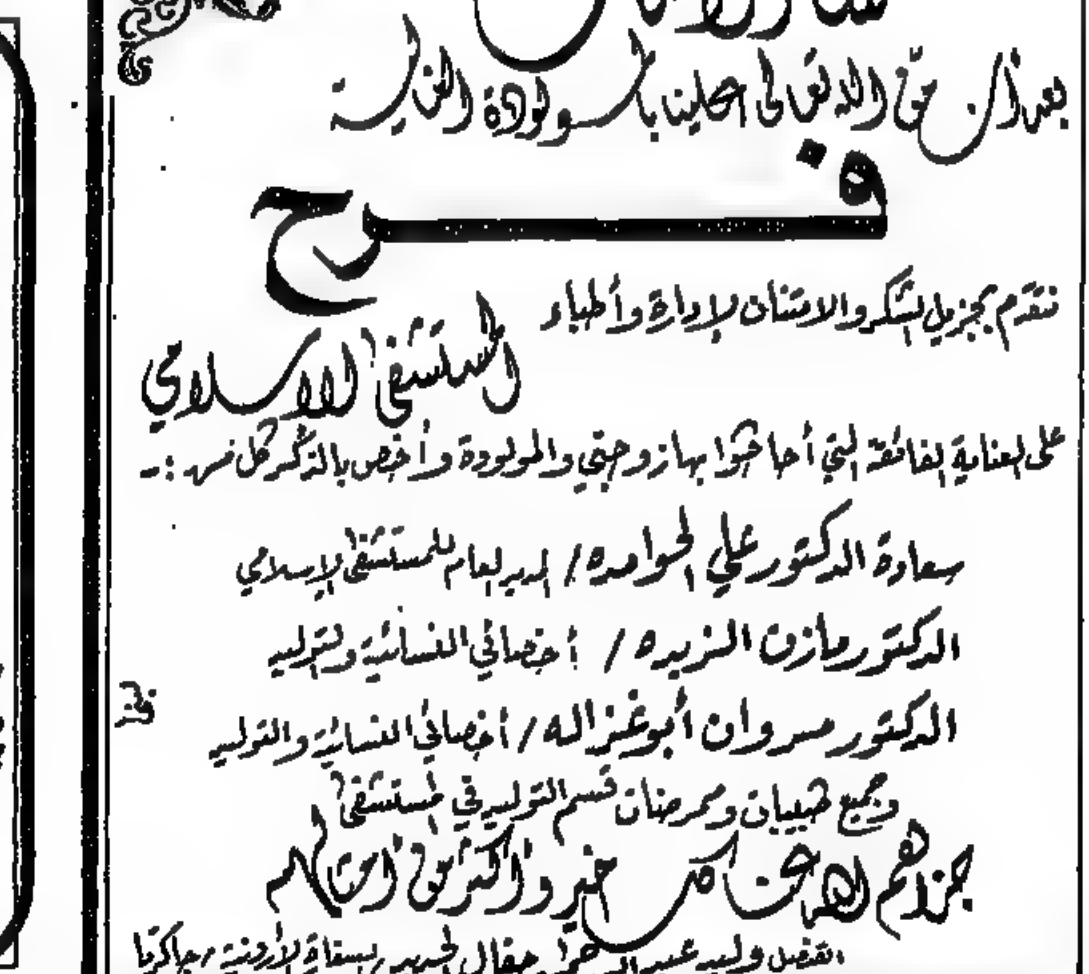 بعد أن منّ الله تعالى علينا بالمولودة الغالية
فرح
نتقدم بجزيل الشكر والامتنان لإدارة وأطباء
المستشفى الاسلامي
على العناية الفائقة التي أحاطوا بها زوجتي والمولودة وأخص بالذكر كل من :-
سعادة الدكتور علي الحوامده / المدير العام للمستشفى الإسلامي
الدكتور مازن الزبده / أخصائي النسائية والتوليد
الدكتور مروان أبو غزاله / أخصائي النسائية والتوليد
وجميع طبيبات وممرضات قسم التوليد في المستشفى
جزاهم الله عنا كل خير وأكثر من أمثالهم
القنصل وليد عبد السفارة الأردنية / جاكرتا